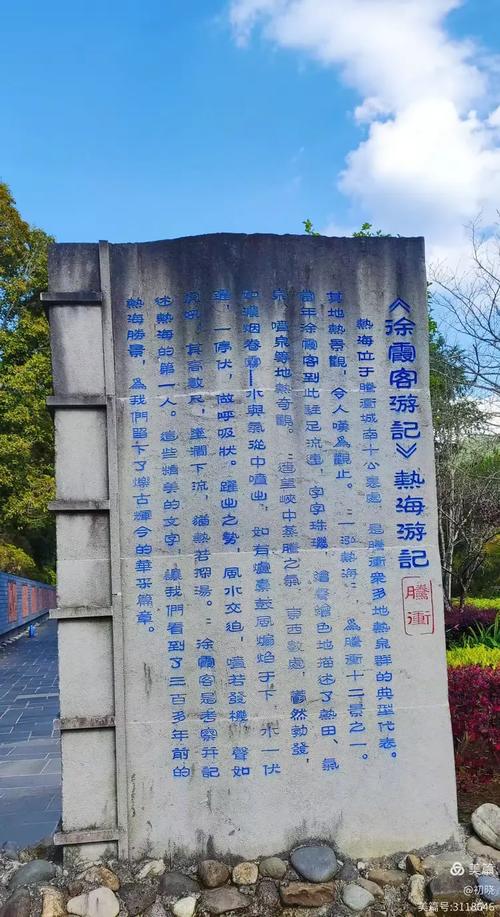 《徐霞客游記》熱海游記
騰衝
熱海位于騰衝城南十公里處，是騰衝衆多地熱泉群的典型代表。
其地熱景觀，令人嘆爲觀止。“一泓熱海”爲騰衝十二景之一。
當年徐霞客到此駐足流連，字字珠璣，繪聲繪色地描述了熱田、氣
泉、噴泉等地熱奇觀。“遥望峽中蒸騰之氣，東西數處，鬱然勃發，
如濃烟卷霧—水與氣從中噴出，如有爐橐鼓風煽焰于下，水一伏
一停伏，做呼吸狀。躍出之勢，風水交迫，噴若發機，聲如
虎吼，其高數尺，墜澗下流，猶熱若探湯。”徐霞客是考察并記
述熱海的第一人。這些精美的文字，讓我們看到了三百多年前的
熱海勝景，爲我們留下了爍古輝今的華采篇章。
美篇
@初晓
美篇号:3118646